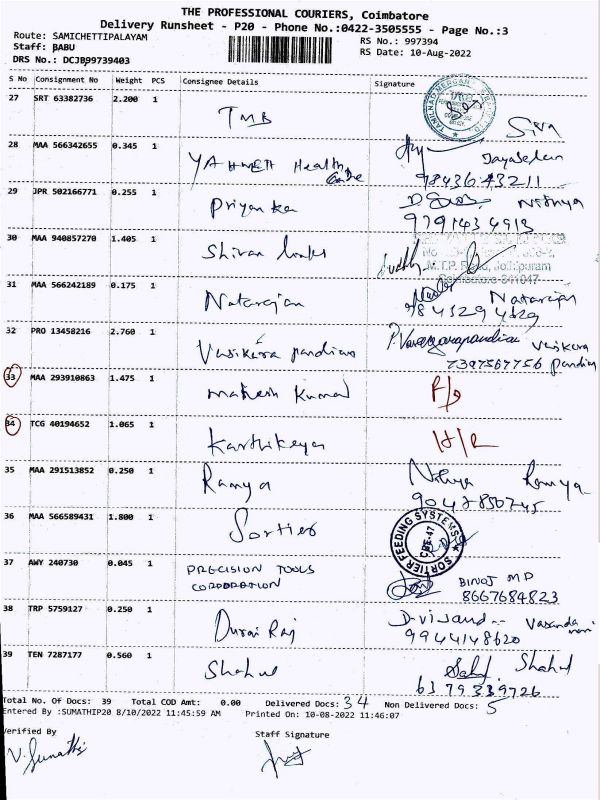 THE PROFESSIONAL COURIERS, Coimbatore
Delivery Runsheet - P20 - Phone No.:0422-3505555 - Page No.:3
Route: SAMICHETTIPALAYAM
RS No.: 997394
Staff: BABU
RS Date: 10-Aug-2022
DRS No.: DCJB99739403
S No Consignment No Weight PCS Consignee Details Signature
27 SRT 63382736 2.200 1 TMB Siva
28 MAA 566342655 0.345 1 YAHWEH Health Centre Jayaseelan
98436 43211
29 JPR 502166771 0.255 1 Priyanka Nithya
9791434913
30 MAA 940857270 1.405 1 Shivan
M.T.P. Jothipuram
Coimbatore-641047
31 MAA 566242189 0.175 1 Natarajan Natarajan
984329 4529
32 PRO 13458216 2.760 1 Vasikara pandian Vasikara pandian
7397567756
33 MAA 293910863 1.475 1 Mahesh Kumar
34 TCG 40194652 1.065 1 Karthikeya
35 MAA 291513852 0.250 1 Ramya Nithya Ramya
9047850745
36 MAA 566589431 1.800 1 Sortier SORTIER FEEDING SYSTEMS CBE-47
37 AWY 240730 0.045 1 PRECISION TOOLS CORPORATION BINOJ MP
8667684823
38 TRP 5759127 0.250 1 Durai Raj
9944148620
39 TEN 7287177 0.560 1 Shahul Shahul
6379339726
Total No. Of Docs: 39 Total COD Amt: 0.00 Delivered Docs: 34 Non Delivered Docs: 5
Entered By :SUMATHIP20 8/10/2022 11:45:59 AM Printed On: 10-08-2022 11:46:07
Verified By Staff Signature
V. Sumathi